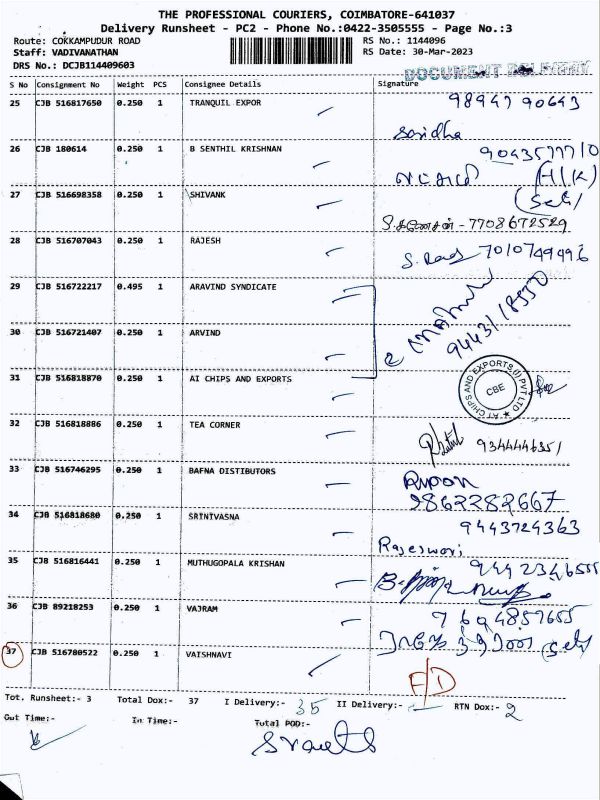 THE PROFESSIONAL COURIERS, COIMBATORE-641037
Delivery Runsheet - PC2 - Phone No.:0422-3505555 - Page No.:3
Route: COKKAMPUDUR ROAD RS No.: 1144096
Staff: VADIVANATHAN RS Date: 30-Mar-2023
DRS No.: DCJB114409603 DOCUMENT DELIVERY
S No Consignment No Weight PCS Consignee Details Signature
25 CJB 516817650 0.250 1 TRANQUIL EXPOR 98947 90643
Saridha
26 CJB 180614 0.250 1 B SENTHIL KRISHNAN 9043577710
(H/K)
27 CJB 516698358 0.250 1 SHIVANK (Self)
S.கணேசன் - 7708672529
28 CJB 516707043 0.250 1 RAJESH 7010749496
29 CJB 516722217 0.495 1 ARAVIND SYNDICATE
30 CJB 516721407 0.250 1 ARVIND
31 CJB 516818870 0.250 1 AI CHIPS AND EXPORTS
AI CHIPS AND EXPORTS (I) PVT LTD
CBE
32 CJB 516818886 0.250 1 TEA CORNER
9344446351
33 CJB 516746295 0.250 1 BAFNA DISTIBUTORS
9862282667
34 CJB 516818680 0.250 1 SRINIVASNA 9443724363
Rajeswari
35 CJB 516816441 0.250 1 MUTHUGOPALA KRISHAN
36 CJB 89218253 0.250 1 VAJRAM
(Self)
37 CJB 516780522 0.250 1 VAISHNAVI F/D
Tot. Runsheet:- 3 Total Dox:- 37 I Delivery:- 35 II Delivery:- RTN Dox:- 2
Out Time:- In Time:- Total POD:-